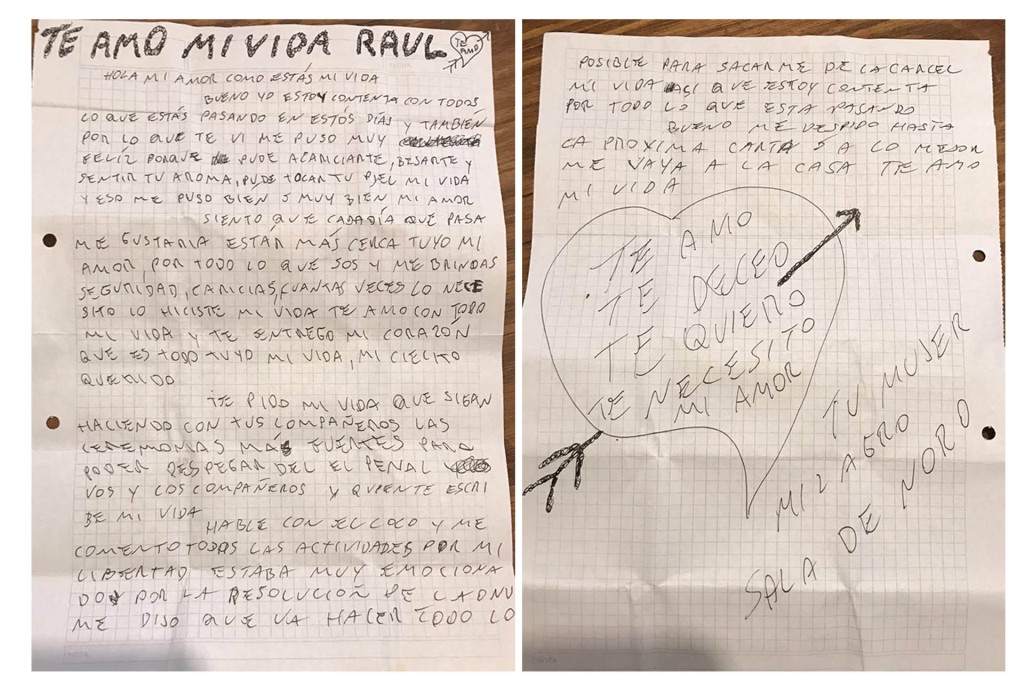 TE AMO MI VIDA RAUL
TE
AMO
HOLA MI AMOR COMO ESTÁS MI VIDA
BUENO YO ESTOY CONTENTA CON TODOS
LO QUE ESTÁS PASANDO EN ESTOS DÍAS Y TAMBIEN
POR LO QUE TE VI ME PUSO MUY
FELÍZ PORQUE PUDE ACARICIARTE, BESARTE Y
SENTIR TU AROMA, PUDE TOCAR TU PIEL MI VIDA
Y ESO ME PUSO BIEN MUY BIEN MI AMOR
SIENTO QUE CADA DÍA QUE PASA
ME GUSTARIA ESTÁR MÁS CERCA TUYO MI
AMOR, POR TODO LO QUE SOS Y ME BRINDAS
SEGURIDAD, CARICIAS, CUANTAS VECES LO NECE
SITO LO HICISTE MI VIDA TE AMO CON TODO
MI VIDA Y TE ENTREGO MI CORAZÓN
QUE ES TODO TUYO MI VIDA, MI CIELITO
QUERIDO
TE PIDO MI VIDA QUE SIGAN
HACIENDO CON TUS COMPAÑEROS LAS
CEREMONIAS MÁS FUERTES PARA
PODER DESPEGAR DEL EL PENAL
VOS Y LOS COMPAÑEROS Y QUIENTE ESCRI
BE MI VIDA
HABLE CON EL COCO Y ME
COMENTO TODAS LAS ACTIVIDADES POR MI
LIBERTAD ESTABA MUY EMOCIONA
DO POR LA RESOLUCIÓN DE LA ONU
ME DIJO QUE VA HACER TODO LO
POSIBLE PARA SACARME DE LA CARCEL
MI VIDA ASI QUE ESTOY CONTENTA
POR TODO LO QUE ESTA PASANDO
BUENO ME DESPIDO HASTA
LA PROXIMA CARTA A LO MEJOR
ME VAYA A LA CASA TE AMO
MI VIDA
TE AMO
TE DECEO
TE QUIERO
TE NECESITO
MI AMOR
TU MUJER
MILAGRO
SALA DE NORO